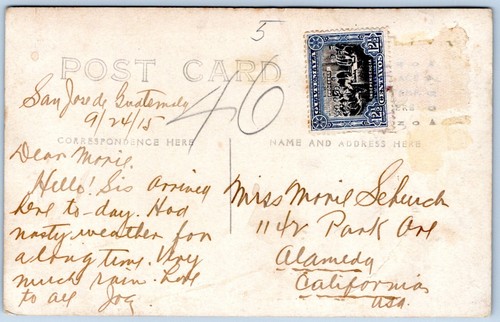 5
POST CARD
46
GUATEMALA
12½ CENTAVOS 12½
San Jose de Guatemala
9/24/15
CORRESPONDENCE HERE
NAME AND ADDRESS HERE
Dear Marie.
Hello! Sis arrived
here to-day. Had
nasty weather for
a long time. Very
much rain. Love
to all Joy
Miss Marie Scheuch
1142 Park Ave
Alameda
California
USA.